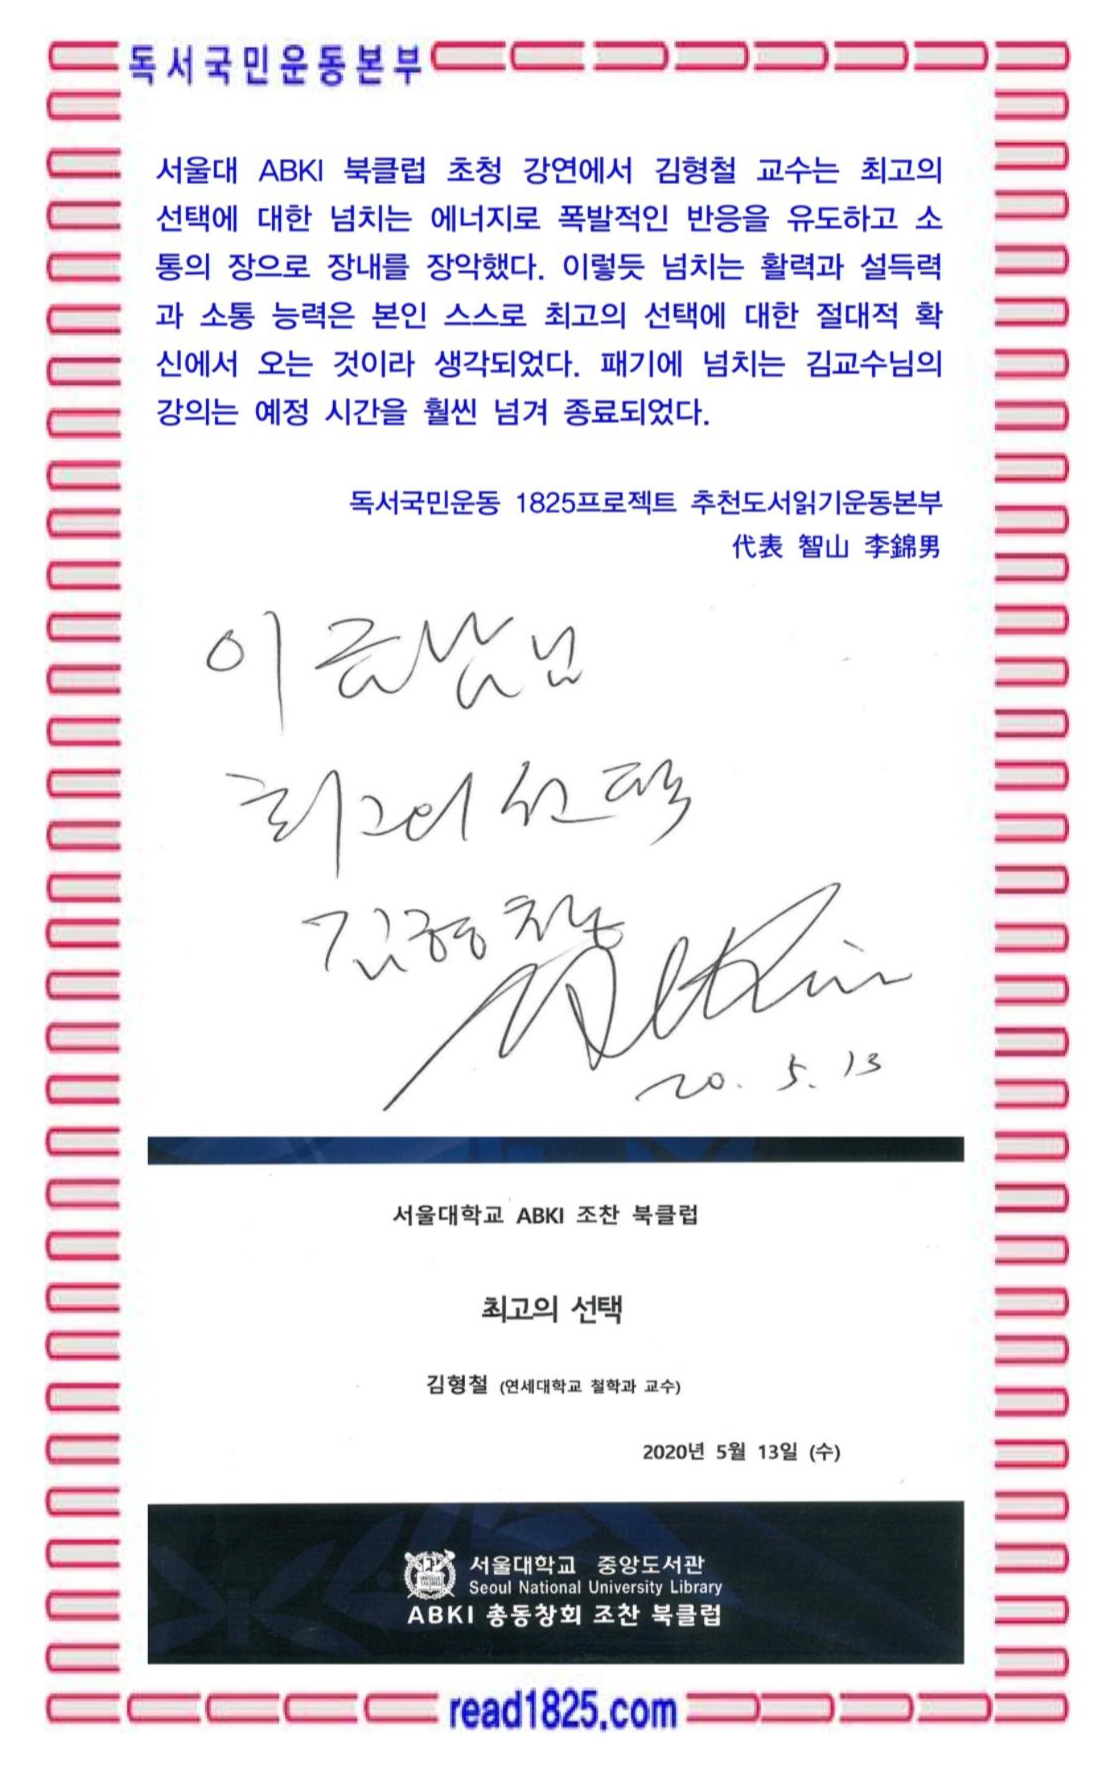 독서국민운동본부
서울대 ABKI 북클럽 초청 강연에서 김형철 교수는 최고의
선택에 대한 넘치는 에너지로 폭발적인 반응을 유도하고 소
통의 장으로 장내를 장악했다. 이렇듯 넘치는 활력과 설득력
과 소통 능력은 본인 스스로 최고의 선택에 대한 절대적 확
신에서 오는 것이라 생각되었다. 패기에 넘치는 김교수님의
강의는 예정 시간을 훨씬 넘겨 종료되었다.
독서국민운동 1825프로젝트 추천도서읽기운동본부
代表 智山 李錦男
이금남님
최고의 선택
김형철
20. 5. 13
서울대학교 ABKI 조찬 북클럽
최고의 선택
김형철 (연세대학교 철학과 교수)
2020년 5월 13일 (수)
서울대학교 중앙도서관
Seoul National University Library
ABKI 총동창회 조찬 북클럽
read1825.com